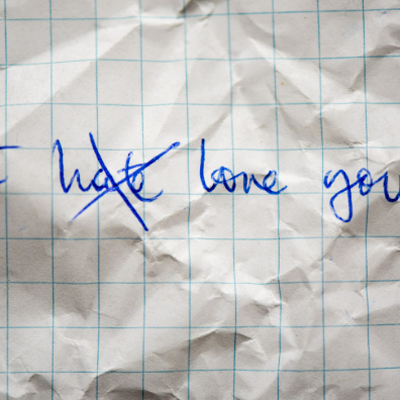 I hate love you